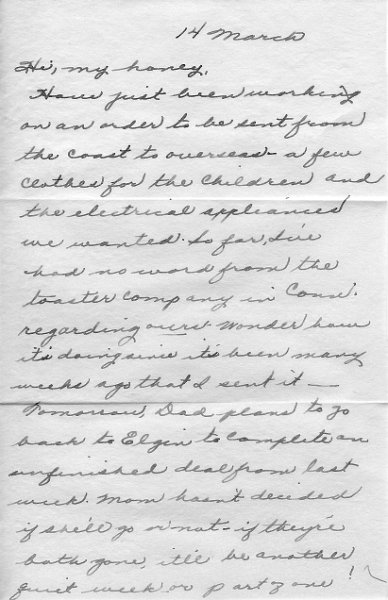 14 March
Hi, my honey,
Have just been working
on an order to be sent from
the coast to overseas - a few
clothes for the children and
the electrical appliances
we wanted. So far, I've
had no word from the
toaster company in Conn.
regarding ours. Wonder how
it's doing since it's been many
weeks ago that I sent it —
Tomorrow, Dad plans to go
back to Elgin to complete an
unfinished deal from last
week. Mom hasn't decided
if she'll go or not - if they're
both gone, it'll be another
quiet week or part of one!